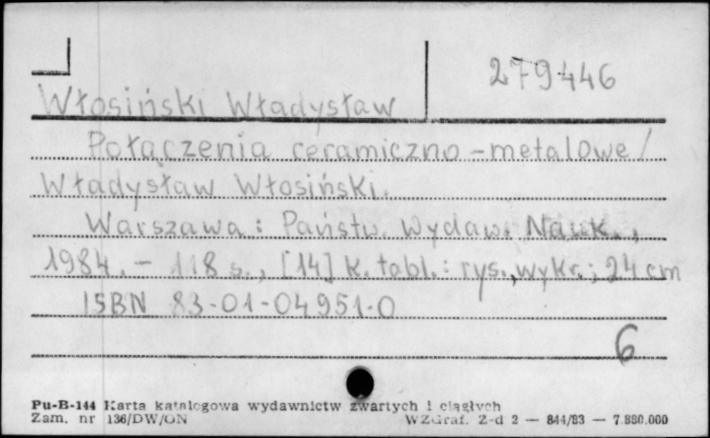 279446
Włosiński Władysław
Połączenia ceramiczno-metalowe /
Władysław Włosiński.
Warszawa : Państw. Wydaw. Nauk.,
1984. - 118 s., [14] k. tabl. : rys., wykr. ; 24 cm
ISBN 83-01-04951-0
6
Pu-B-144 Karta katalogowa wydawnictw zwartych i ciągłych
Zam. nr 136/DW/ON WZGraf. Z-d 2 — 844/83 — 7.880.000